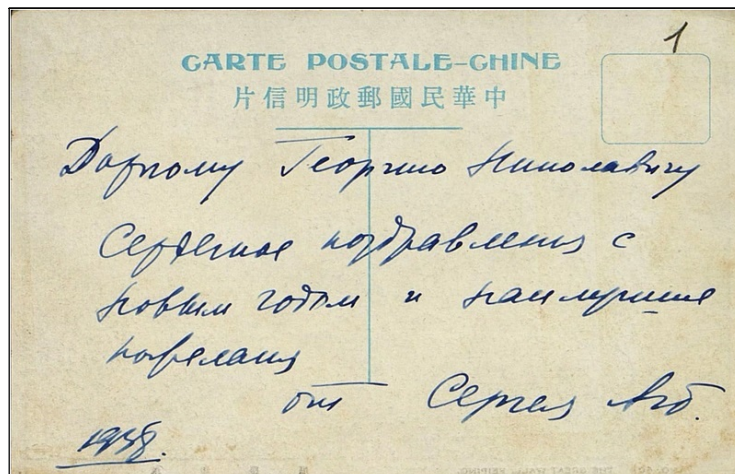 1
CARTE POSTALE-CHINE
片信明政郵國民華中
Дорогому Георгию Николаевичу
Сердечные поздравления с
Новым годом и наилучшие
пожелания
от Сергея
1938.